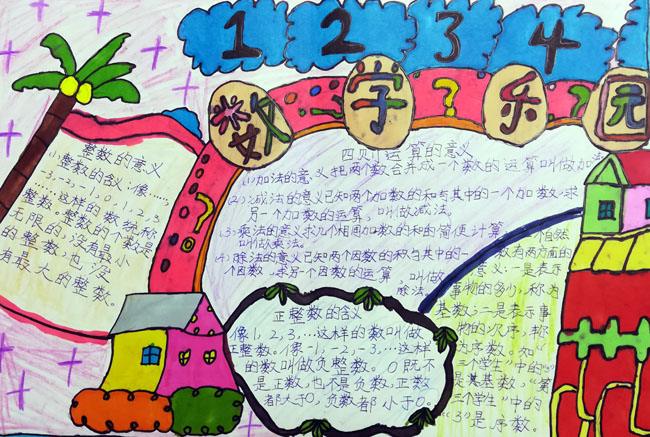 1 2 3 4
数学乐园
整数的意义
(1)整数的含:像……
-3,-2,-1,0,1,2,3
……这样的数统称
整数。整数的个数是
无限的。没有最小
的整数,也没
有最大的整数。
四则运算的意义
(1)加法的意义把两个数合并成一个数的运算叫做加法
(2)减法的意义已知两个加数的和与其中的一个加数,求
另一个加数的运算,叫做减法。
(3)乘法的意义求几个相同加数的和的简便计算,
叫做乘法。
(4)除法的意义已知两个因数的积与其中的一
个因数,求另一个因数的运算 叫做
除法。
自然
数有两方面的
意义:一是表示
事物的多少,称为
基数;二是表示事
物的次序,称
为序数。如“
三个学生”中的
是其基数。“第
三个学生”中的
“3”是序数。
正整数的含义
像1,2,3,…这样的数叫做
正整数。像-1,-2,-3,…这样
的数叫做负整数。0既不
是正数,也不是负数。正数
都大于0,负数都小于0。